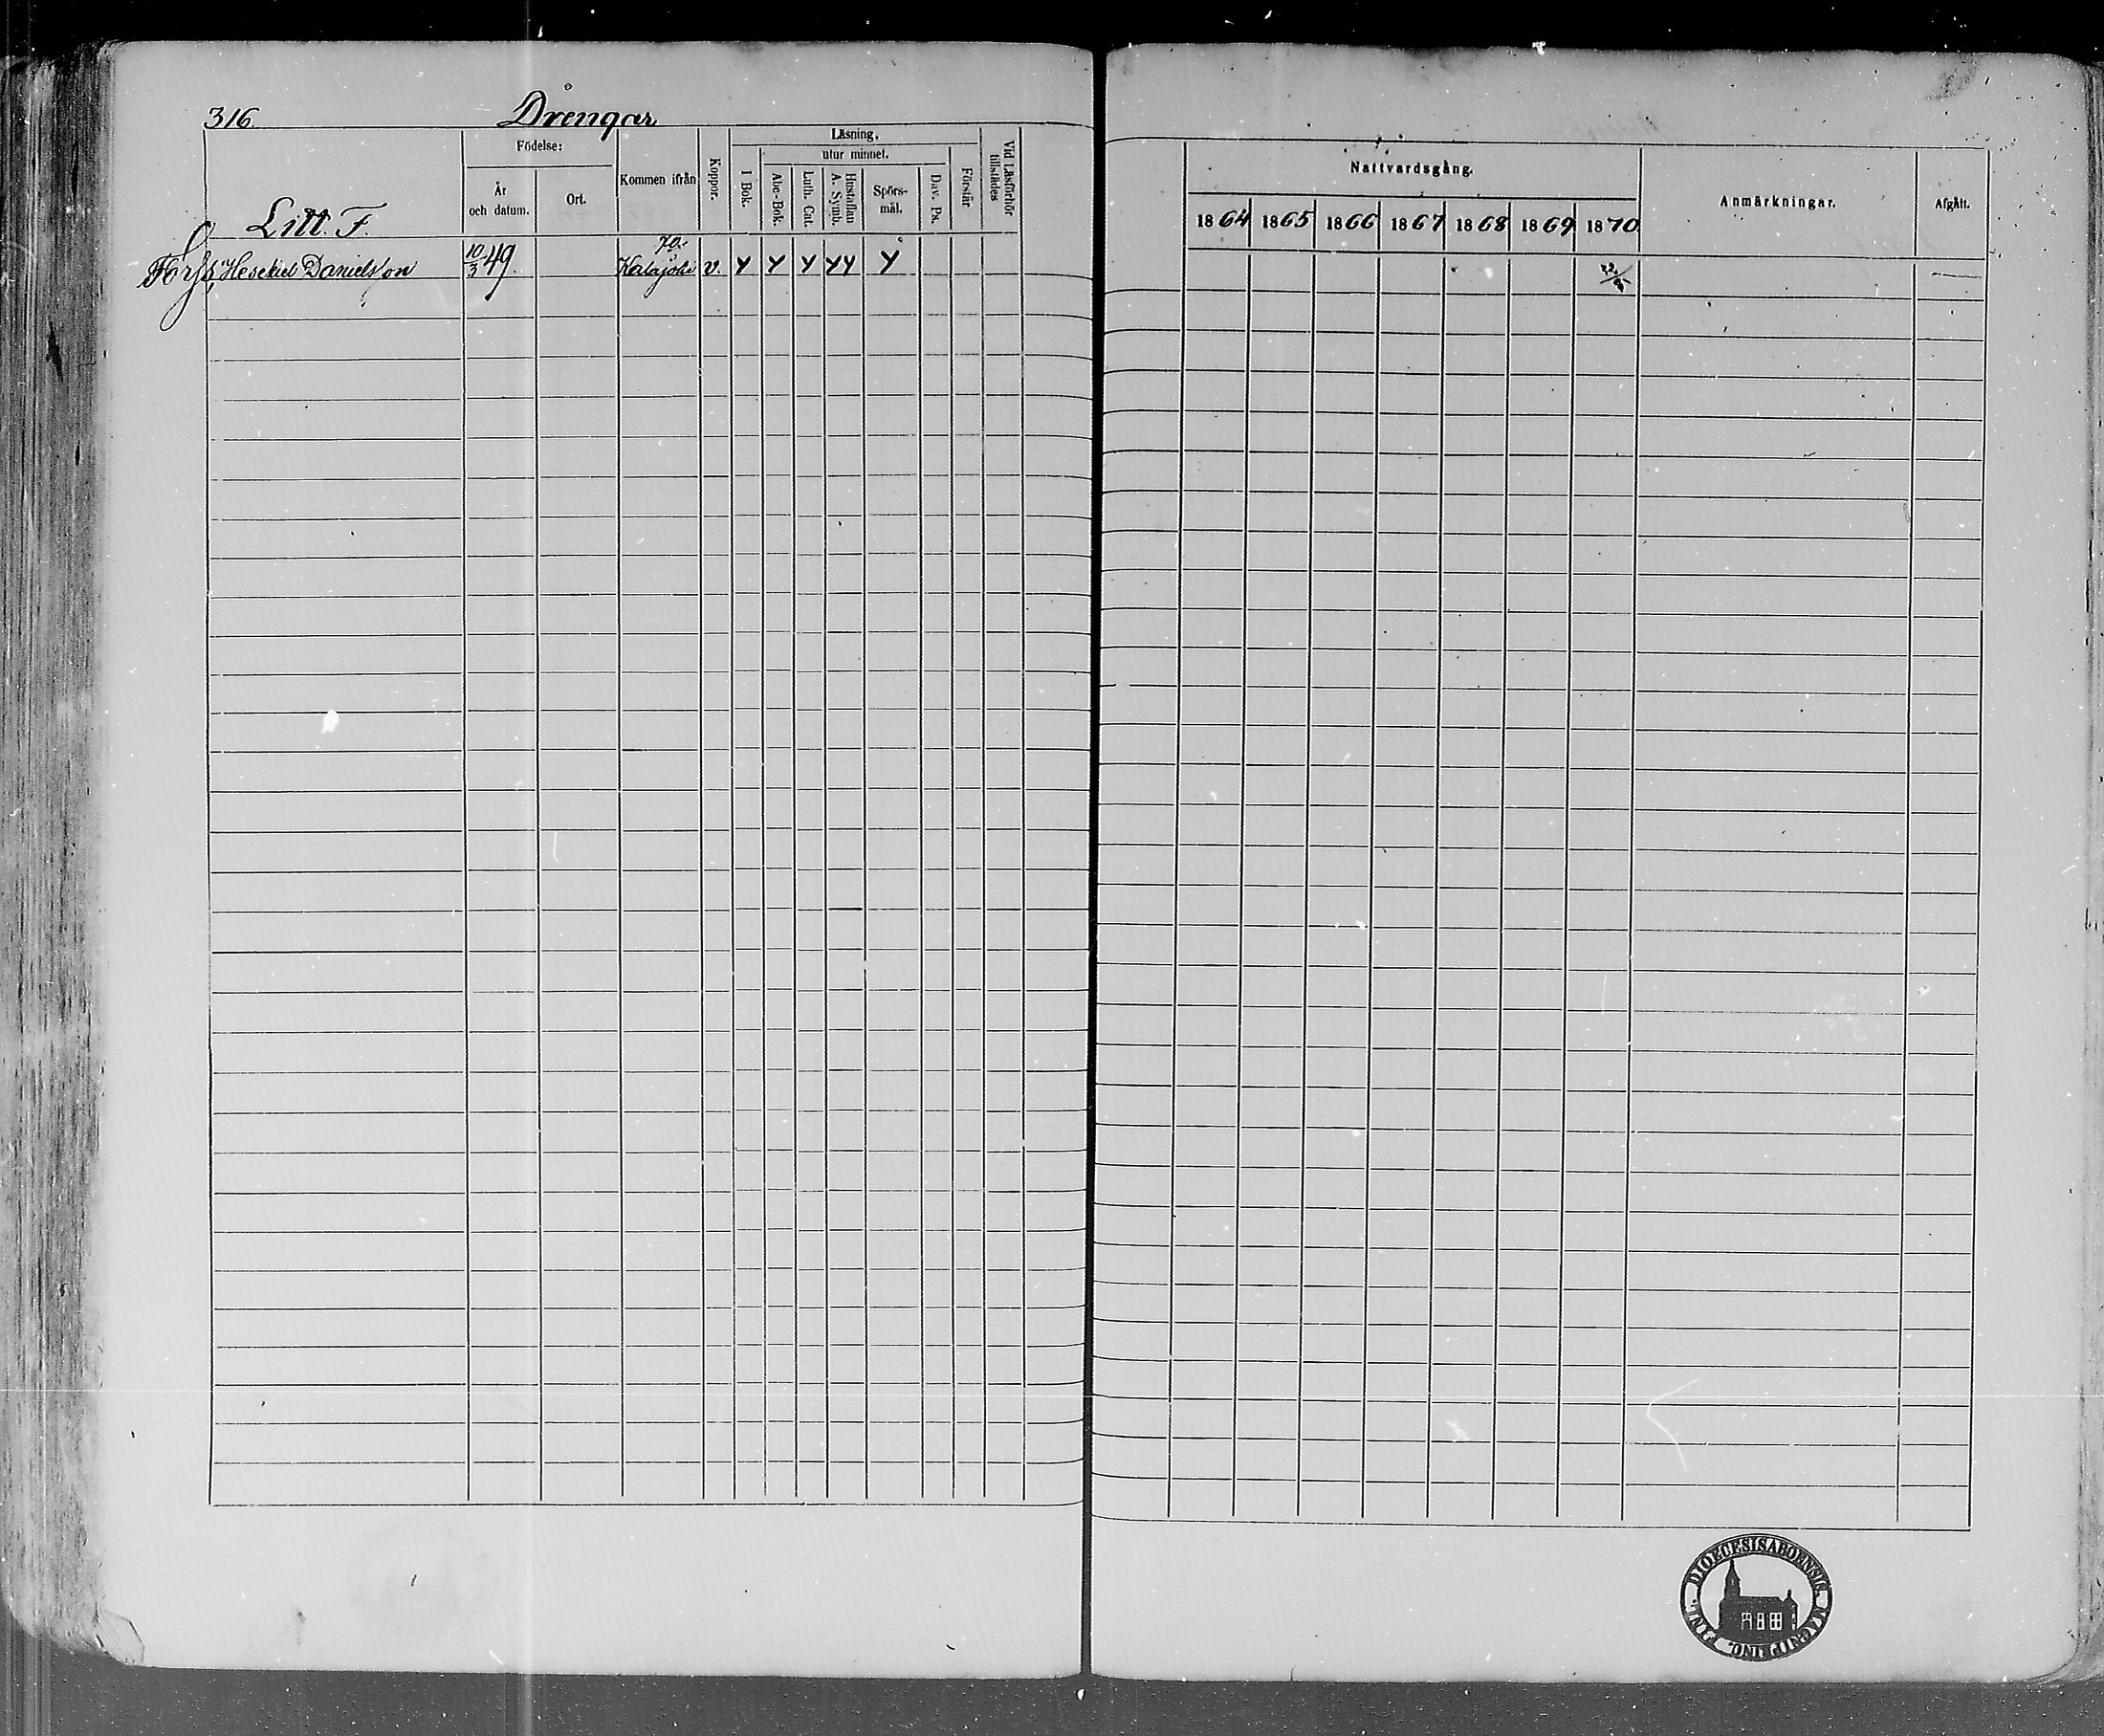 316.
Drengar
Födelse:
År
och datum.
Ort.
Kommen ifrån
Koppor.
Läsning.
I Bok.
utur minnet.
Abc-Bok.
Luth. Cat.
Hustaflan
A. Symb.
Spörs-
mål.
Dav. Ps.
Förstår
Vid Läsförhör
tillstädes
Litt. F.
Hesekiel Danielsson 10/3 49. 70. Kalajoki v.
Nattvardsgång.
1864 1865 1866 1867 1868 1869 1870
Anmärkningar.
Afgått.
FINL. DIOECESIS ABOENSIS. MAGNIPRINC.